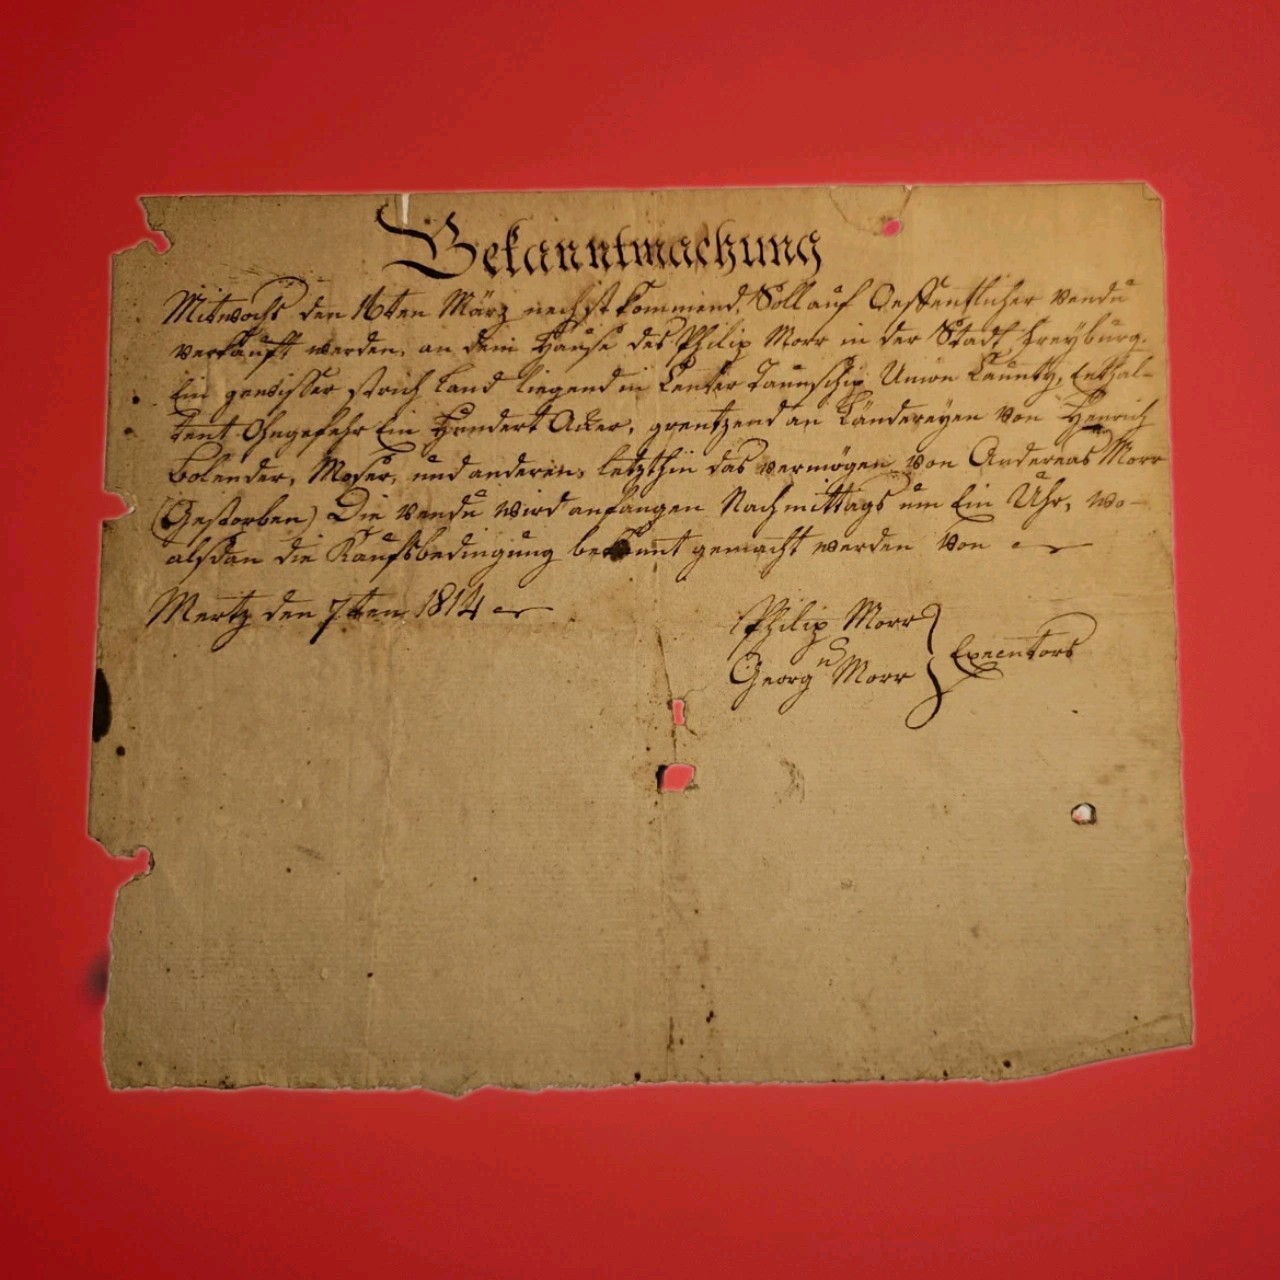 Bekanntmachung
Mitwochs den 16ten März nechst kommend, Soll auf Oeffentlicher vendu
verkauft werden, an dem Hause des Philip Morr in der Stadt Freyburg.
Ein gewisser strich Land liegend in Center Taunschip Union Caunty, Enthal-
tent Ohngefehr Ein Hundert Acker, grentzend an Ländereyen von Henrich
Bolender, Moser, und anderen, letzthin das vermögen von Andereas Morr
(Gestorben) Die vendu wird anfangen Nachmittags um Ein Uhr, wo-
alsdan die Kaufsbedingung bekannt gemacht werden von
Mertz den 7ten 1814
Philip Morr
u
Georg Morr } Executors